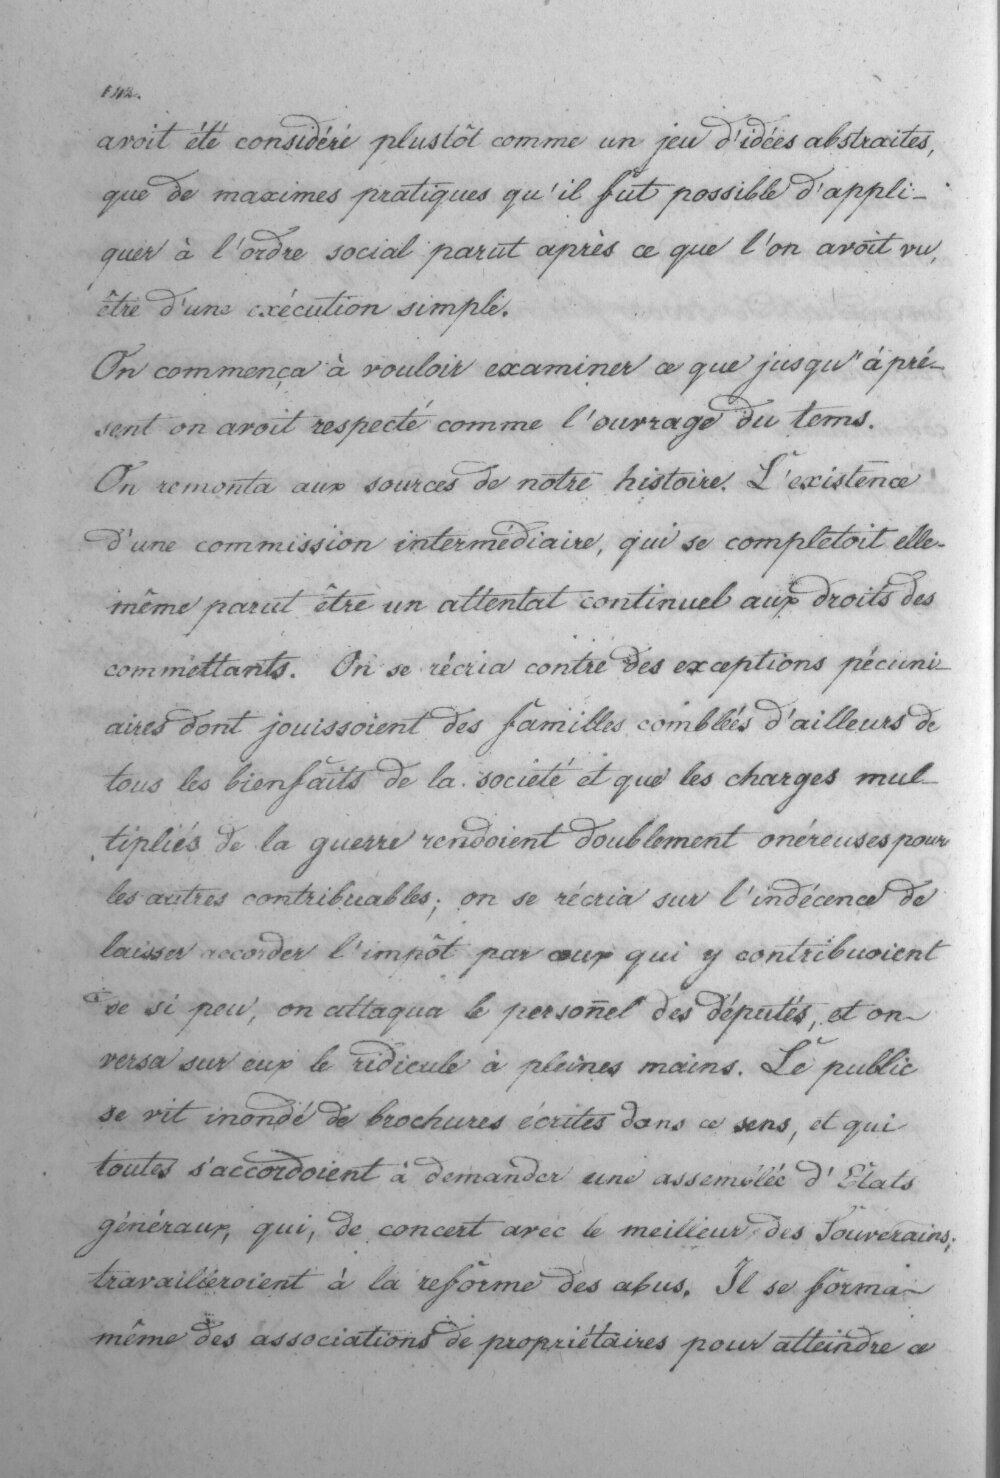 142.
avoit été considéré plustôt comme un jeu d'idées abstraites,
que de maximes pratiques qu'il fut possible d'appli-
quer à l'ordre social parut après ce que l'on avoit vu,
être d'une exécution simple.
On commença à vouloir examiner ce que jusqu'à pré-
sent on avoit respecté comme l'ouvrage du tems.
On remonta aux sources de notre histoire. L'existence
d'une commission intermédiaire, qui se completoit elle-
même parut être un attentat continuel aux droits des
commettants. On se récria contre des exceptions pécuni-
aires dont jouissoient des familles comblées d'ailleurs de
tous les bienfaits de la société et que les charges mul-
tipliés de la guerre rendoient doublement onéreuses pour
les autres contribuables; on se récria sur l'indécence de
laisser accorder l'impôt par ceux qui y contribuoient
de si peu, on attaqua le personnel des députés, et on
versa sur eux le ridicule à pleines mains. Le public
se vit inondé de brochures écrites dans ce sens, et qui
toutes s'accordoient à demander une assemblée d'Etats
généraux, qui, de concert avec le meilleur des Souverains,
travailleroient à la reforme des abus. Il se forma
même des associations de propriétaires pour atteindre ce